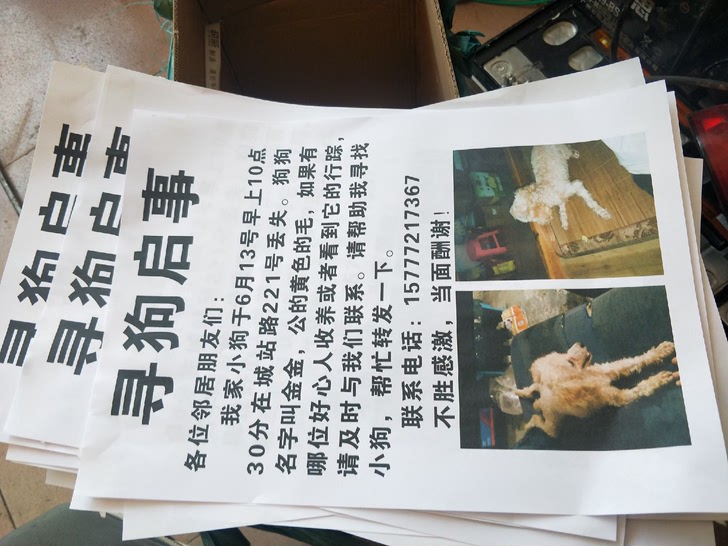 寻狗启事
各位邻居朋友们：
我家小狗于6月13号早上10点
30分在城站路221号丢失。狗狗
名字叫金金，公的黄色的毛，如果有
哪位好心人收养或者看到它的行踪，
请及时与我们联系。请帮助我寻找
小狗，帮忙转发一下。
联系电话：15777217367
不胜感激，当面酬谢！
寻狗启事
寻狗启事
寻